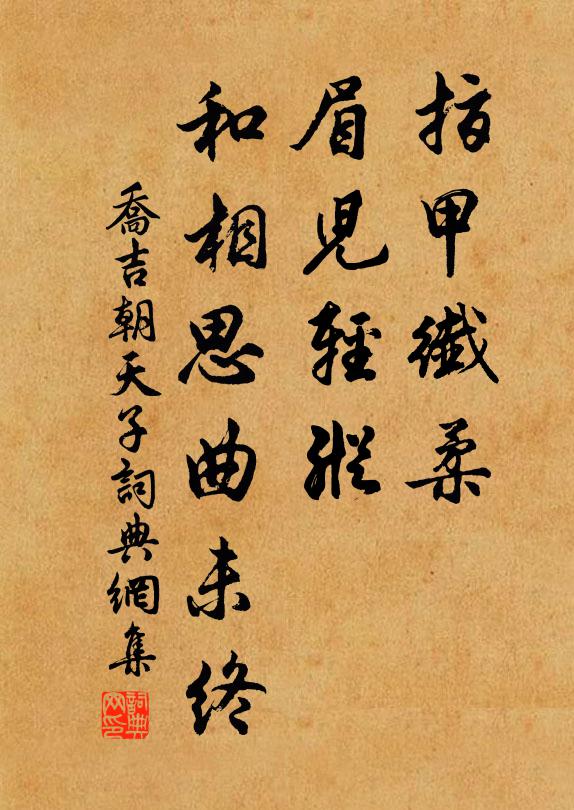 指甲纖柔
眉兒輕縱
和相思曲未終
喬吉朝天子詞典網集
詞典网印